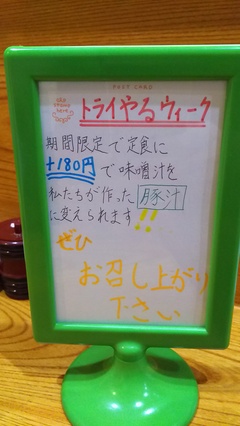 POST CARD
トライやるウィーク
期間限定で定食に
+180円で味噌汁を
私たちが作った豚汁
に変えられます!!
ぜひ
お召し上がり
下さい